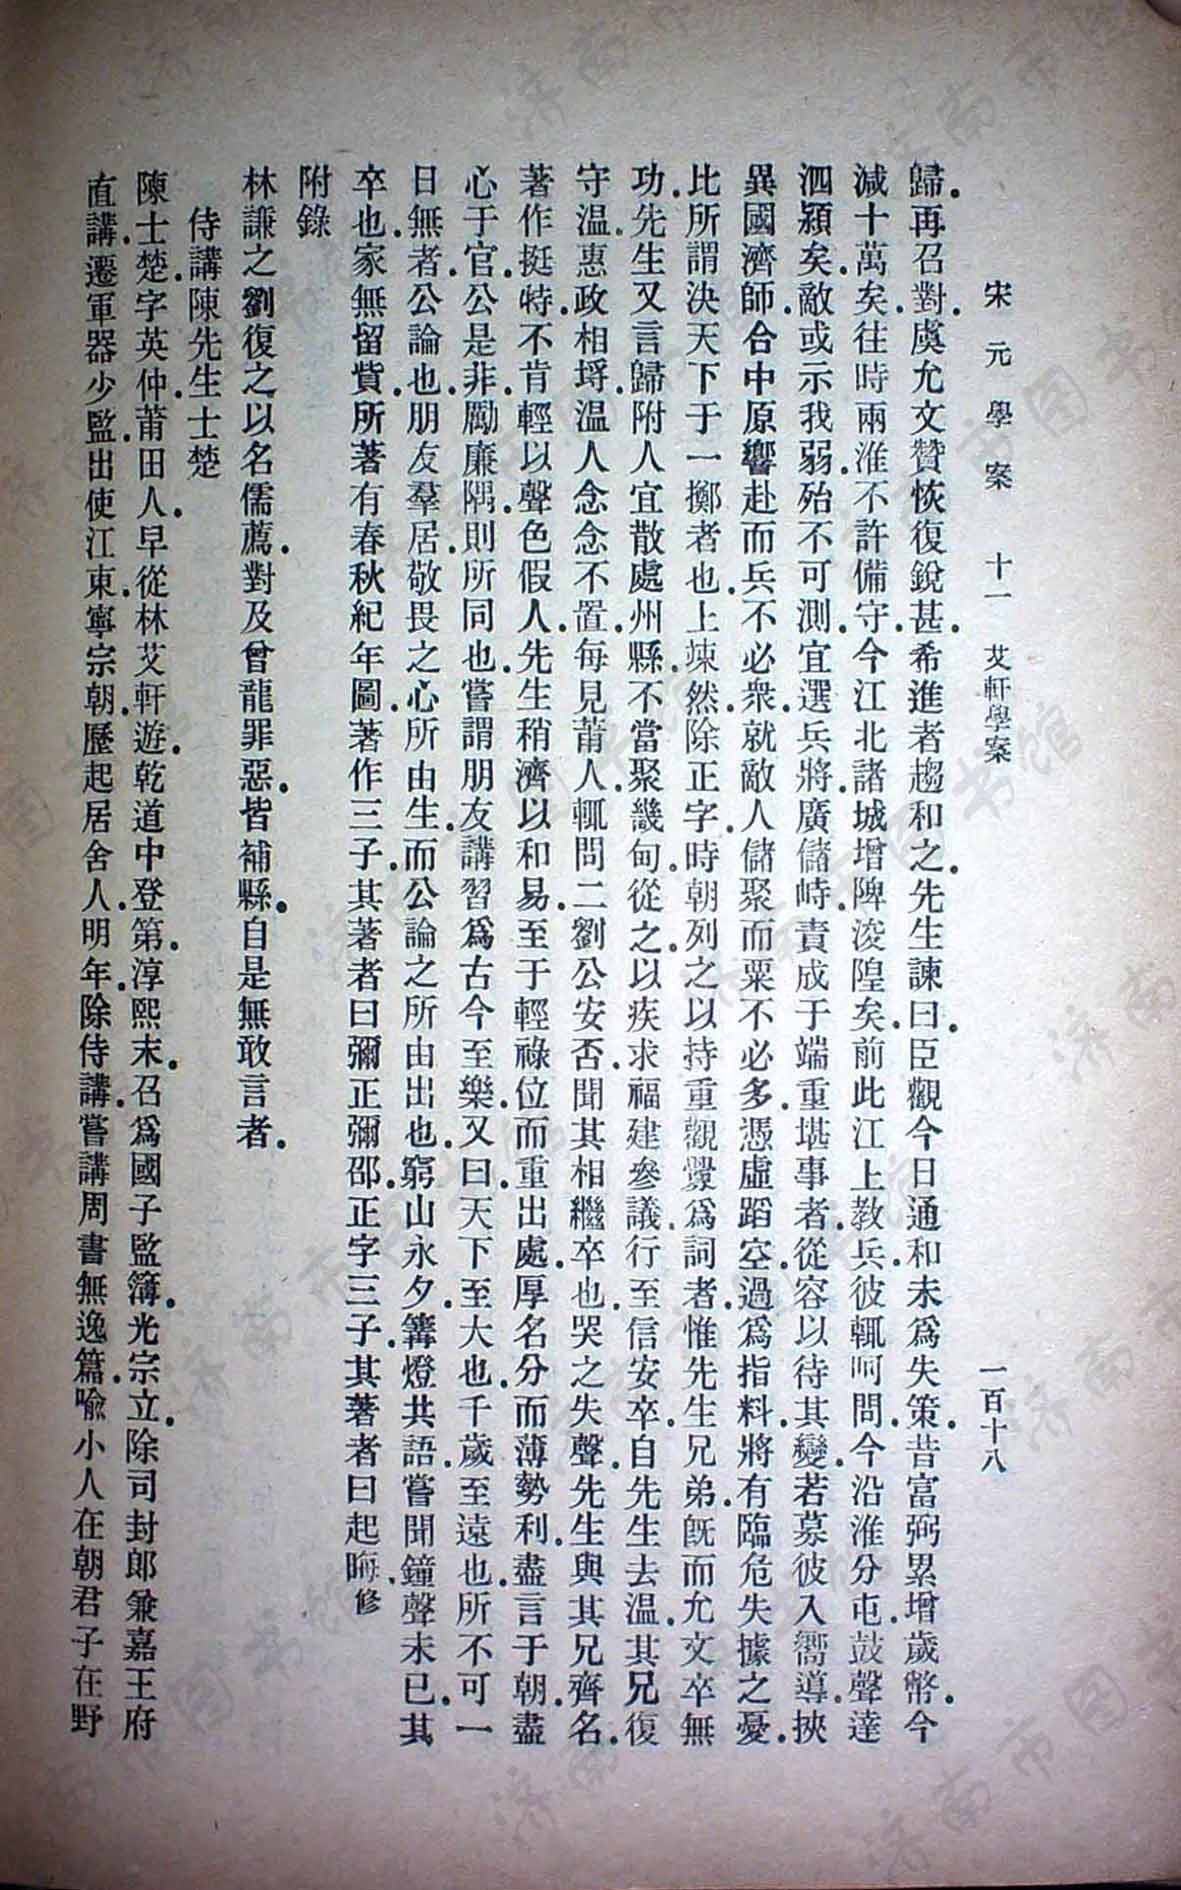 宋元學案 十一 艾軒學案 一百十八
歸再召對虞允文贊恢復銳甚希進者趨和之先生諫曰臣觀今日通和未爲失策昔富弼累增歲幣今
減十萬矣往時兩淮不許備守今江北諸城增陴浚隍矣前此江上教兵彼輒呵問今沿淮分屯鼓聲達
泗潁矣敵或示我弱殆不可測宜選兵將廣儲峙責成于端重堪事者從容以待其變若募彼入嚮導挾
異國濟師合中原響赴而兵不必衆就敵人儲聚而粟不必多憑虛蹈空過爲指料將有臨危失據之憂
比所謂決天下于一擲者也上竦然除正字時朝列之以持重觀釁爲詞者惟先生兄弟旣而允文卒無
功先生又言歸附人宜散處州縣不當聚畿甸從之以疾求福建參議行至信安卒自先生去温其兄復
守温惠政相埒温人念念不置每見莆人輒問二劉公安否聞其相繼卒也哭之失聲先生與其兄齊名
著作挺特不肯輕以聲色假人先生稍濟以和易至于輕祿位而重出處厚名分而薄勢利盡言于朝盡
心于官公是非勵廉隅則所同也嘗謂朋友講習爲古今至樂又曰天下至大也千歲至遠也所不可一
日無者公論也朋友羣居敬畏之心所由生而公論之所由出也窮山永夕篝燈共語嘗聞鐘聲未已其
卒也家無留貲所著有春秋紀年圖著作三子其著者曰彌正彌邵正字三子其著者曰起晦修
附錄
林謙之劉復之以名儒薦對及曾龍罪惡皆補縣自是無敢言者
侍講陳先生士楚
陳士楚字英仲莆田人早從林艾軒遊乾道中登第淳熙末召爲國子監簿光宗立除司封郎兼嘉王府
直講遷軍器少監出使江東寧宗朝歷起居舍人明年除侍講嘗講周書無逸篇喻小人在朝君子在野